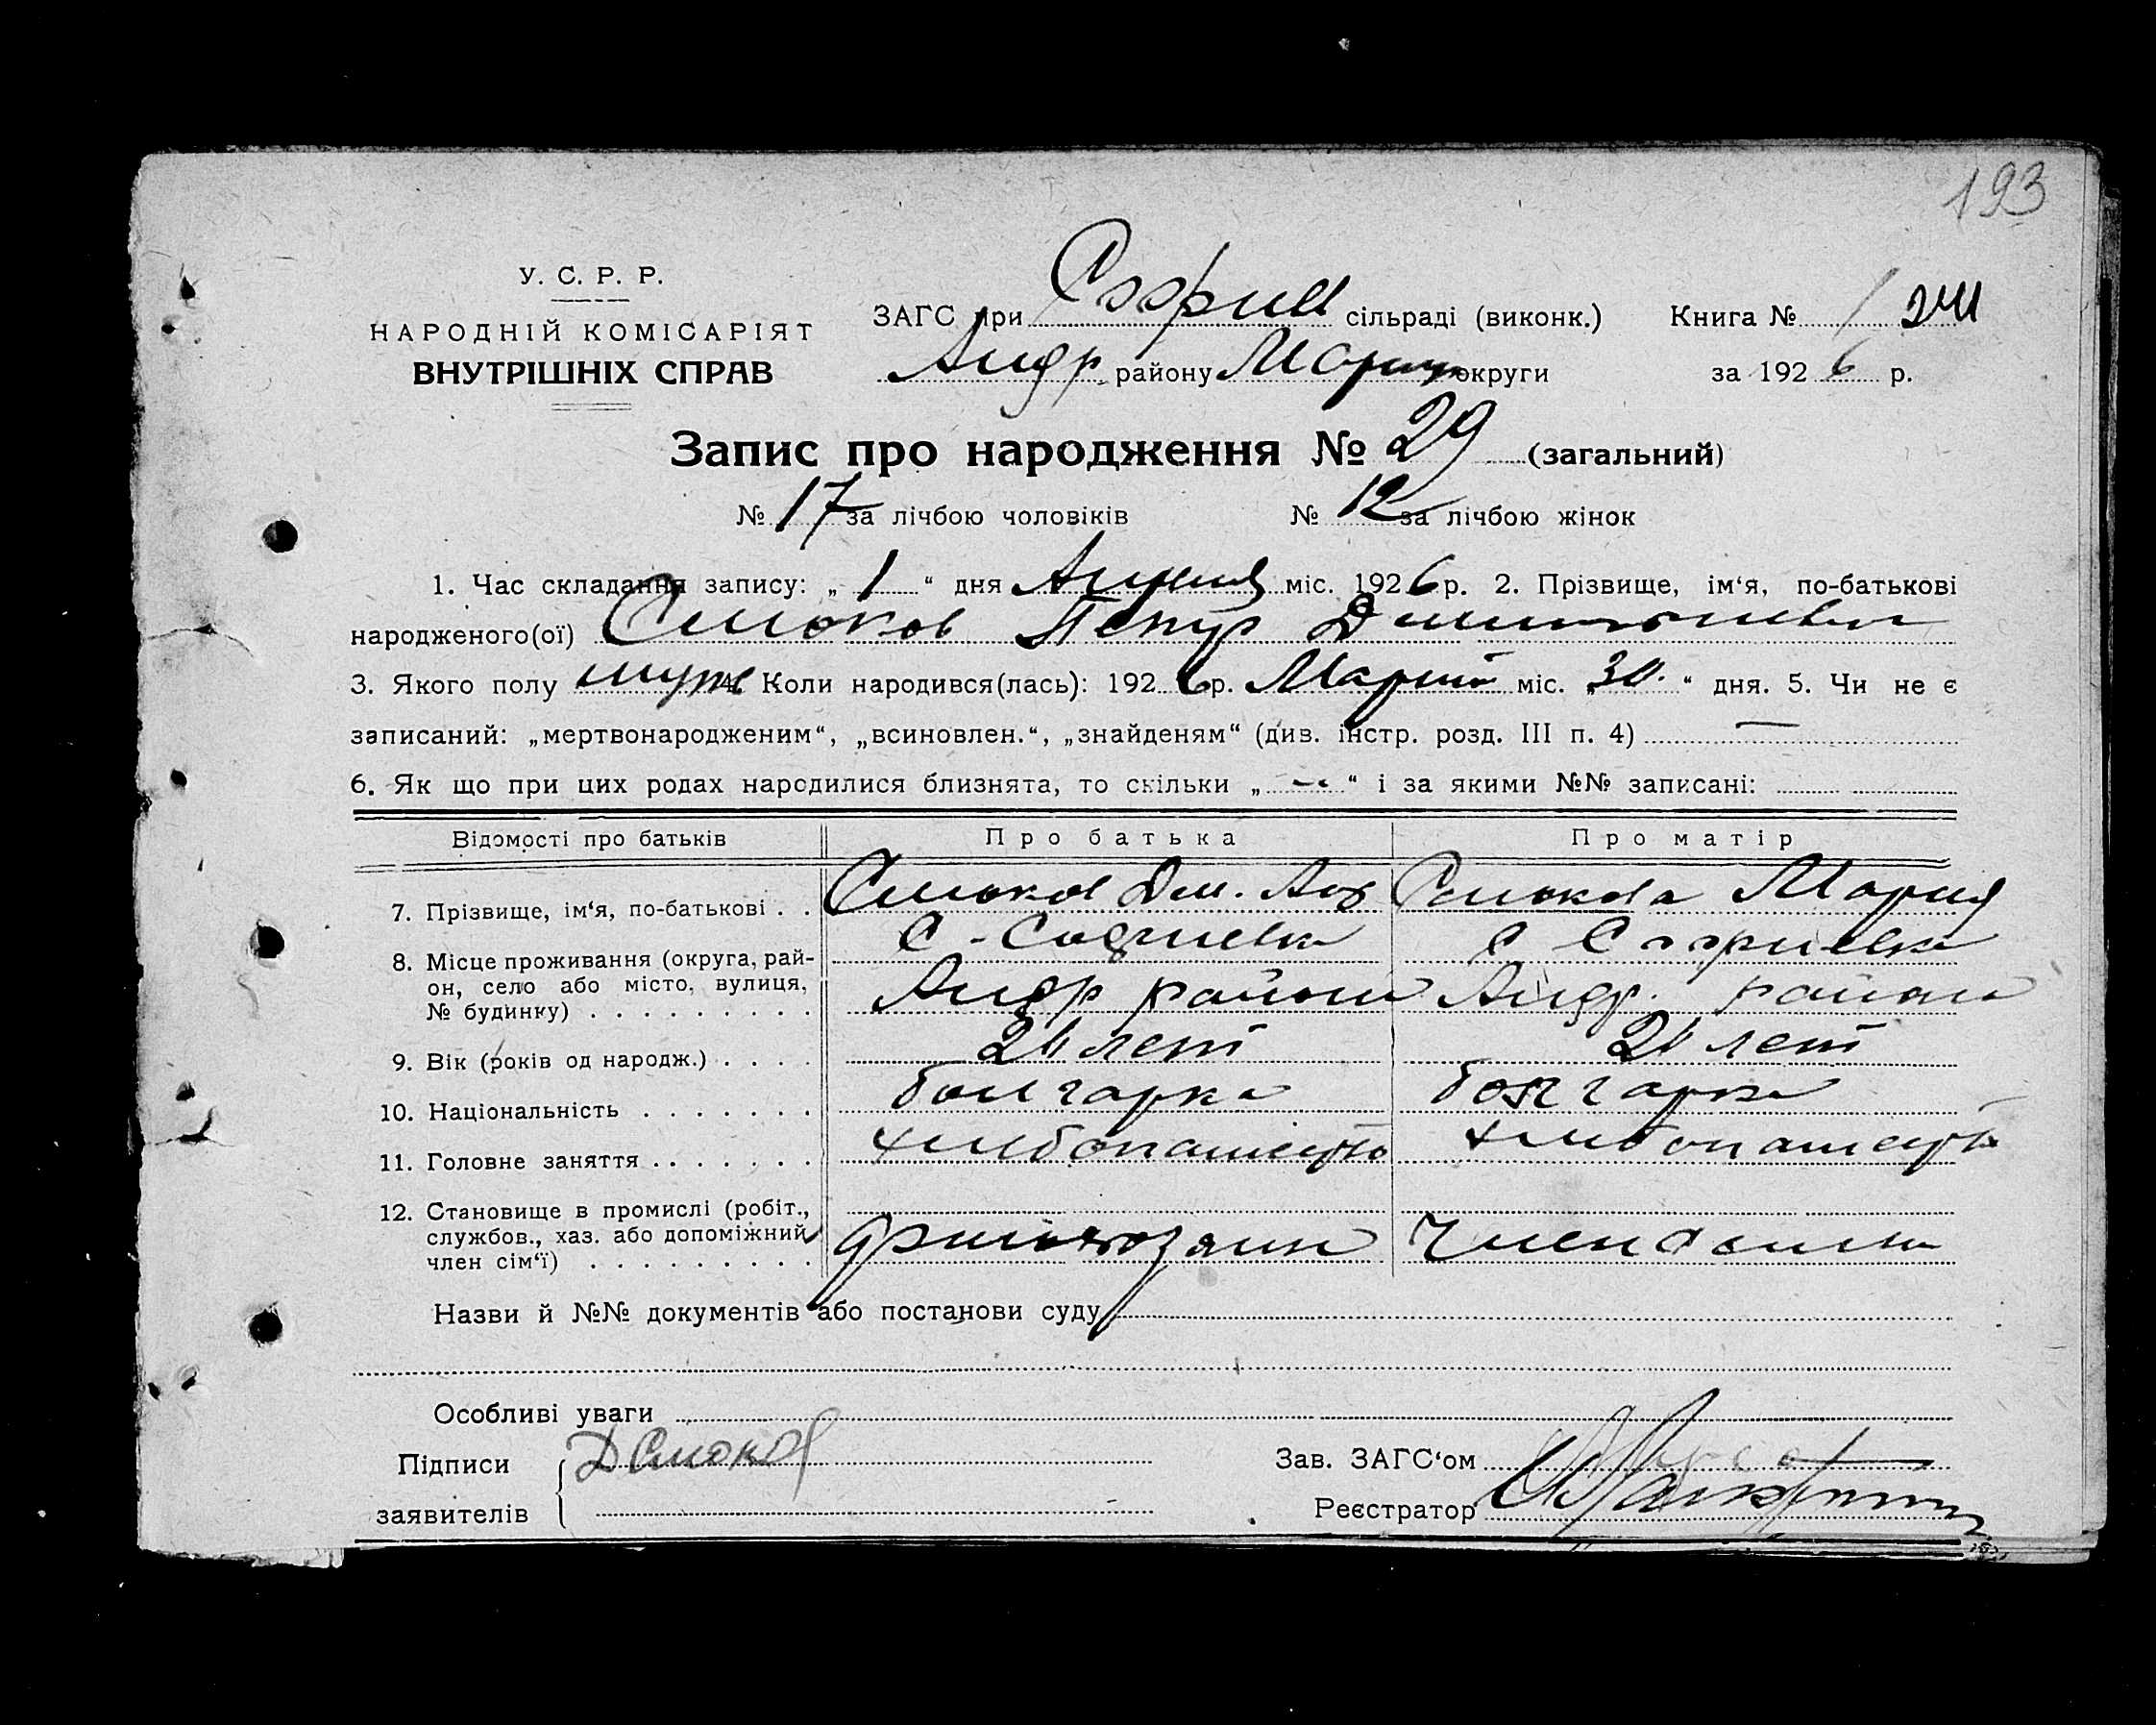 193
У. С. Р. Р.
НАРОДНІЙ КОМІСАРІЯТ
ВНУТРІШНІХ СПРАВ
ЗАГС при Софиев сільраді (виконк.) Книга № 1 241
Андр. району Мариуп округи за 1926 р.
Запис про народження № 29 (загальний)
№ 17 за лічбою чоловіків № 12 за лічбою жінок
1. Час складання запису: „ 1 “ дня Апреля міс. 1926 р. 2. Прізвище, ім‘я, по-батькові
народженого(ої) Смоков Петр
3. Якого полу муж 4. Коли народився(лась): 1926 р. Марта міс. „ 30. “ дня. 5. Чи не є
записаний: „мертвонародженим“, „всиновлен.“, „знайденям“ (див. інстр. розд. III п. 4) —
6. Як що при цих родах народилися близнята, то скільки „ — “ і за якими №№ записані:
Відомості про батьків Про батька Про матір
7. Прізвище, ім‘я, по-батькові . . Смоков Дм. Смокова Мария
8. Місце проживання (округа, рай- С - Софиевка С Софиевка
он, село або місто, вулиця,
№ будинку) . . . . . . . . . Андр район Андр. район
9. Вік (років од народж.) . . . . лет лет
10. Національність . . . . . . . болгарка болгарка
11. Головне заняття . . . . . . . хлебопашество хлебопашество
12. Становище в промислі (робіт.,
службов., хаз. або допоміжний
член сім‘ї) . . . . . . . . . Член
Назви й №№ документів або постанови суду
Особливі уваги
Підписи Д Смоков Зав. ЗАГС‘ом
заявителів Реєстратор